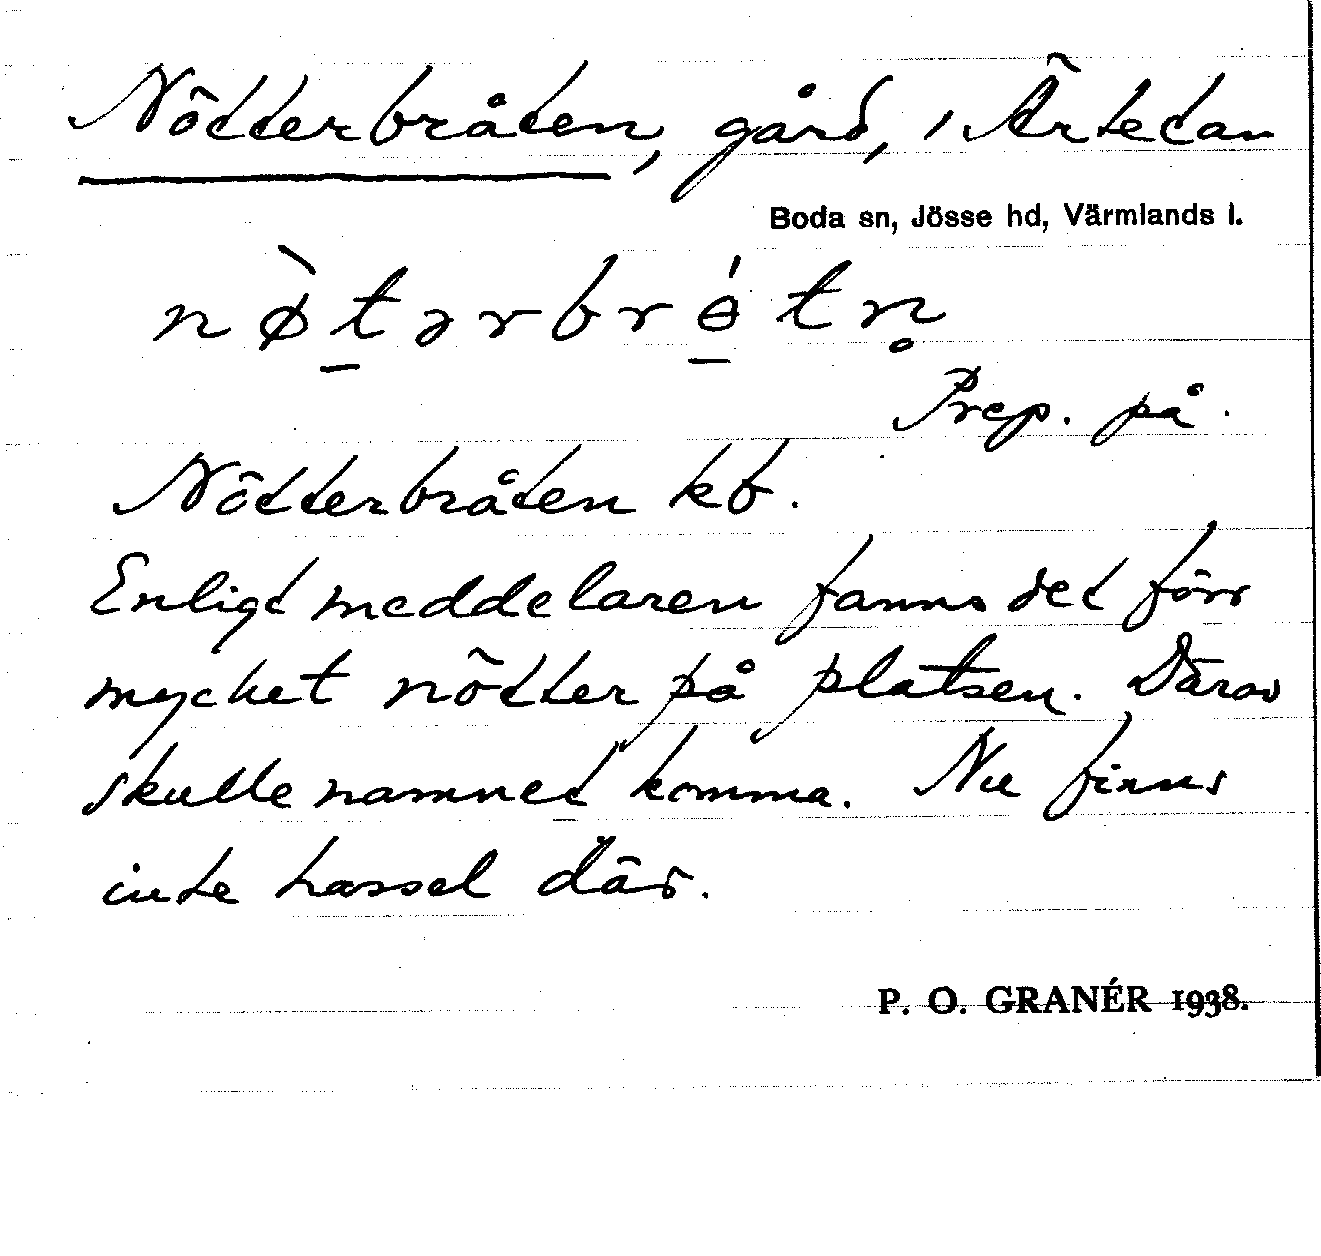 Nötterbråten, gård, i Ärtetan
Boda sn, Jösse hd, Värmlands l.
nø̀t̠ərbrɵ̠́tn̥
Prep. på.
Nötterbråten kb.
Enligt meddelaren fanns det förr
mycket nötter på platsen. Därav
skulle namnet komma. Nu finns
inte hassel där.
P. O. GRANÉR 1938.